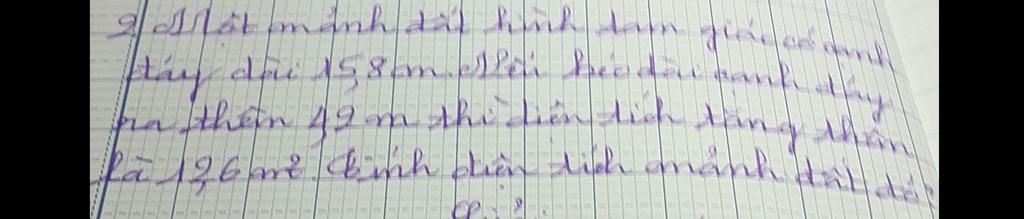 9) Một mảnh đất hình tam giác có cạnh
đáy dài 15,8m. Nếu kéo dài cạnh đáy
ra thêm 4,2 m thì diện tích tăng thêm
là 12,6 m². Tính diện tích mảnh đất đó?